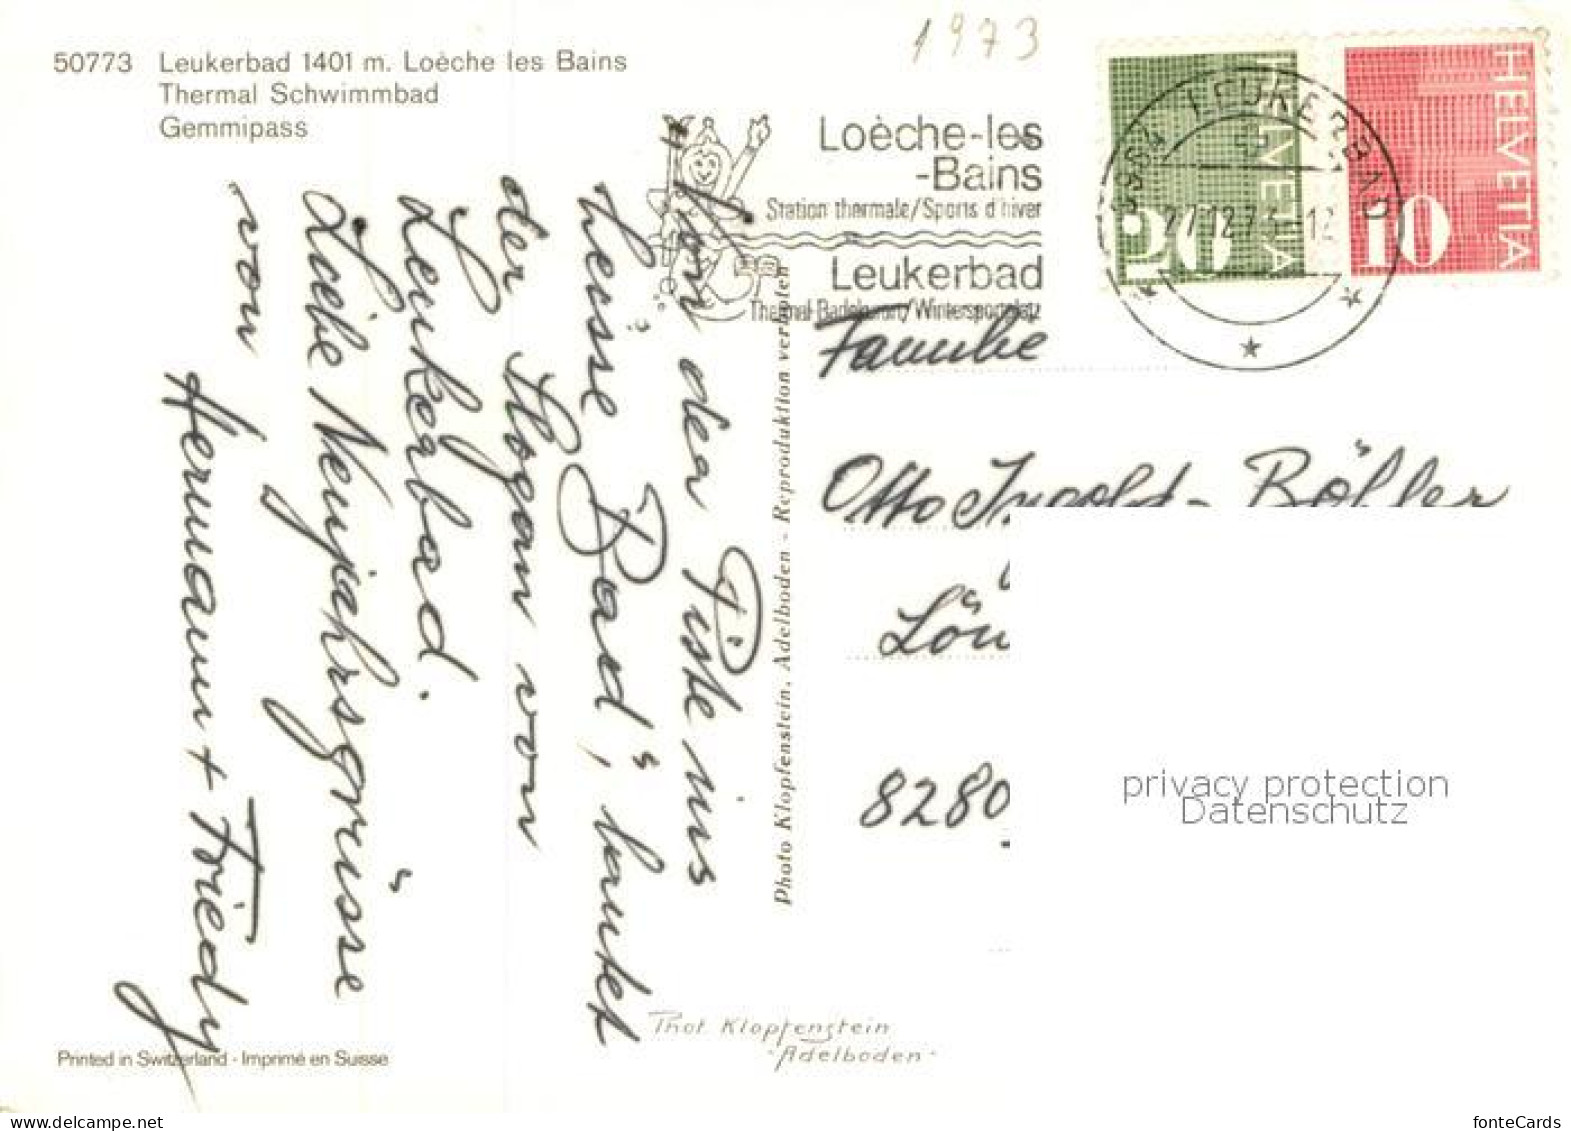 50773 Leukerbad 1401 m. Loèche les Bains
Thermal Schwimmbad
Gemmipass
1973
Loèche-les
-Bains
Station thermale/Sports d'hiver
Leukerbad
Thermal-Badekurort/Wintersportplatz
3954 LEUKERBAD
27.12.73-12
HELVETIA
20
HELVETIA
10
"Von der Piste ins
heisse Bad", lautet
der Slogan von
Leukerbad.
Liebe Neujahrsgrüsse
von
Hermann + Friedy
Photo Klopfenstein, Adelboden - Reproduktion verboten
Familie
Otto Ingold - Böhler
Löw
8280
privacy protection
Datenschutz
Phot Klopfenstein
- Adelboden -
Printed in Switzerland - Imprimé en Suisse
www.delcampe.net
fonteCards